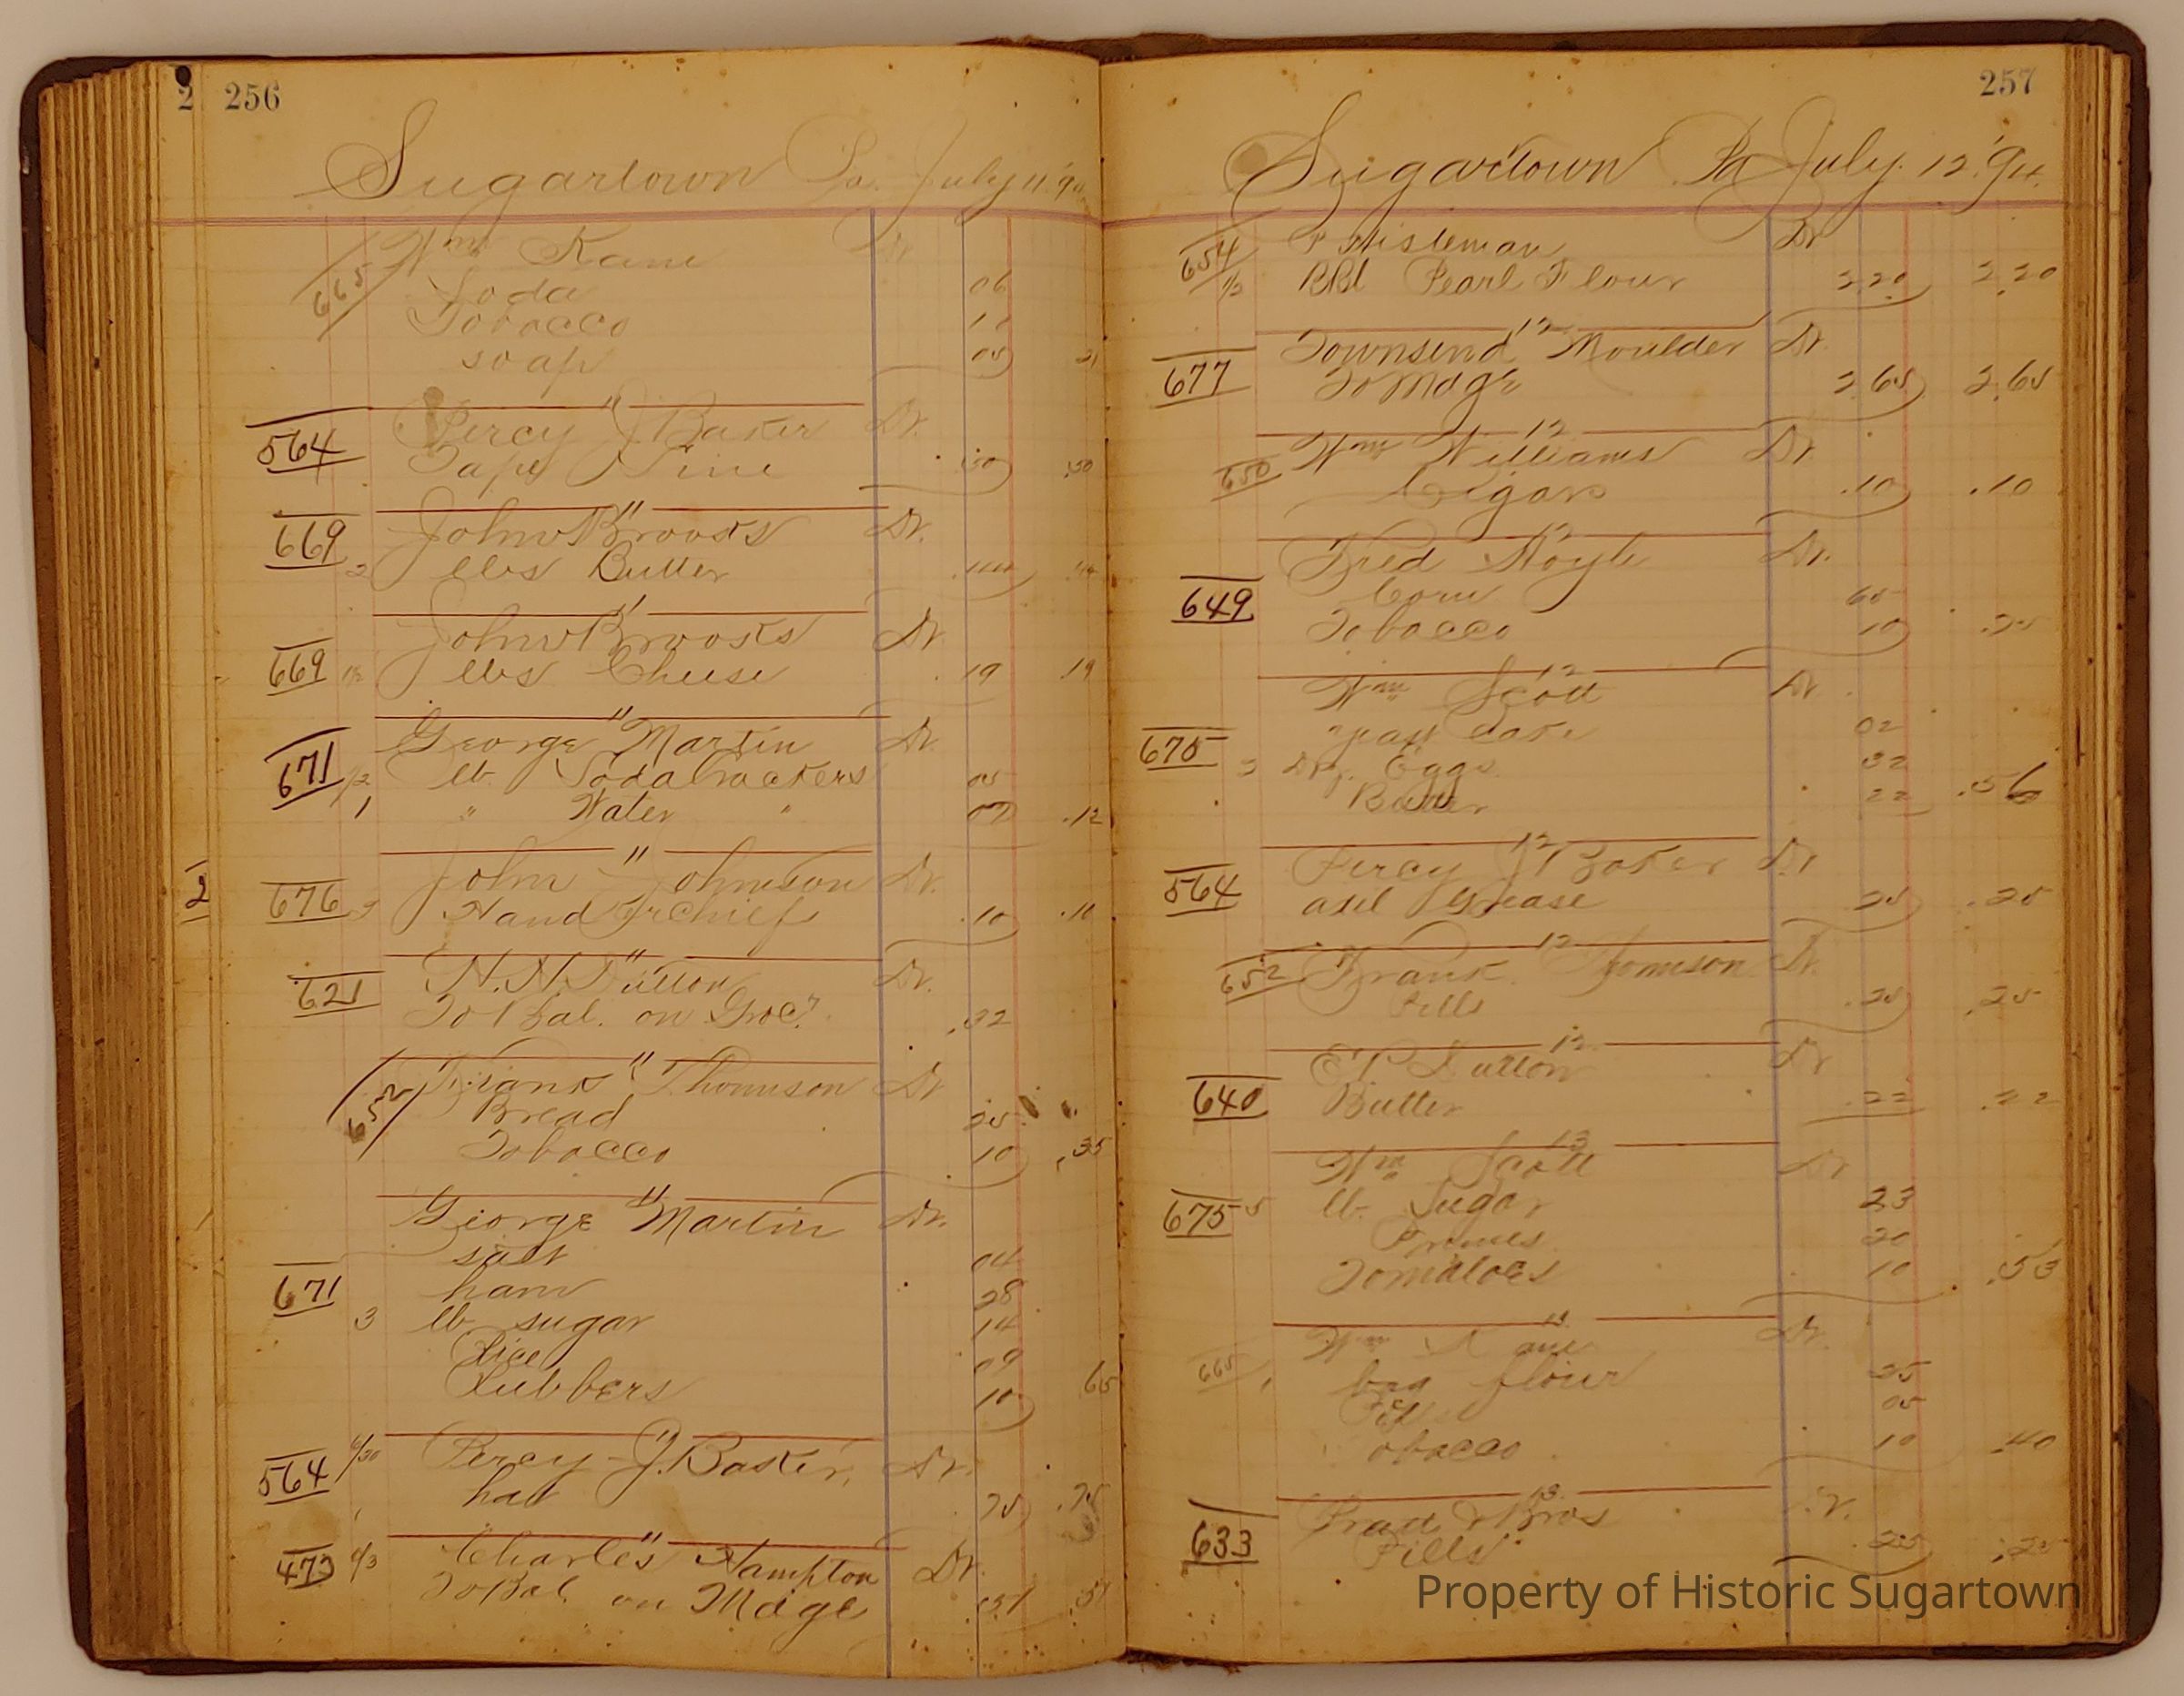 2 256
Sugartown Pa. July 11 '94
665 Wm Kane Dr
Soda 06
Tobacco 10
soap 05 21
11
564 Percy J Baker Dr.
Tape 50 .50
11
669 John Brooks Dr.
2 lbs Butter .44 .44
11
John Brooks Dr
669 lbs Cheese .19 .19
11
George Martin Dr.
671 1/2 lb. Soda Crackers 05
1 " Water " 07 .12
11
2
676 John Johnson Dr.
Hand Krchief .10 .10
11
621 N. N. Dutton Dr.
To Bal. on Groc. .32
11
652 Frank Thomson Dr
Bread 25
Tobacco 10 .35
11
George Martin Dr.
salt 04
671 ham 28
3 lb sugar 14
Rice 09
Rubbers 10 65
11
564 6/30 Percy J. Baker Dr.
1 hat 75 .75
11
473 6/3 Charles Hampton Dr.
To Bal on Mdge .51 .51
257
Sugartown Pa July. 12. '94.
654 Dr
1/2 Bbl Pearl Flour 2.20 2.20
12
Townsend Moulder Dr.
677 To Mdge 2.65 2.65
12
Wm Williams Dr.
650 Cigars .10 .10
12
Fred Hoyle Dr.
649 Corn 65
Tobacco 10 .75
12
Wm Scott Dr
675 yeast cake 02
Doz. Eggs 32
Butter 22 .56
12
Percy J Baker Dr
564 axel Grease .25 .25
12
652 Frank Thomson Dr.
Pills .25 .25
12
E P Dutton Dr
640 Butter .22 .22
13
Wm Scott Dr
675 5 lb. Sugar 23
Prunes 20
Tomatoes 10 .53
13
Wm Kane Dr.
665 1 bag flour 25
Pills 05
obacco 10 .40
13
Bros
633 Pills .25 .25
Property of Historic Sugartown